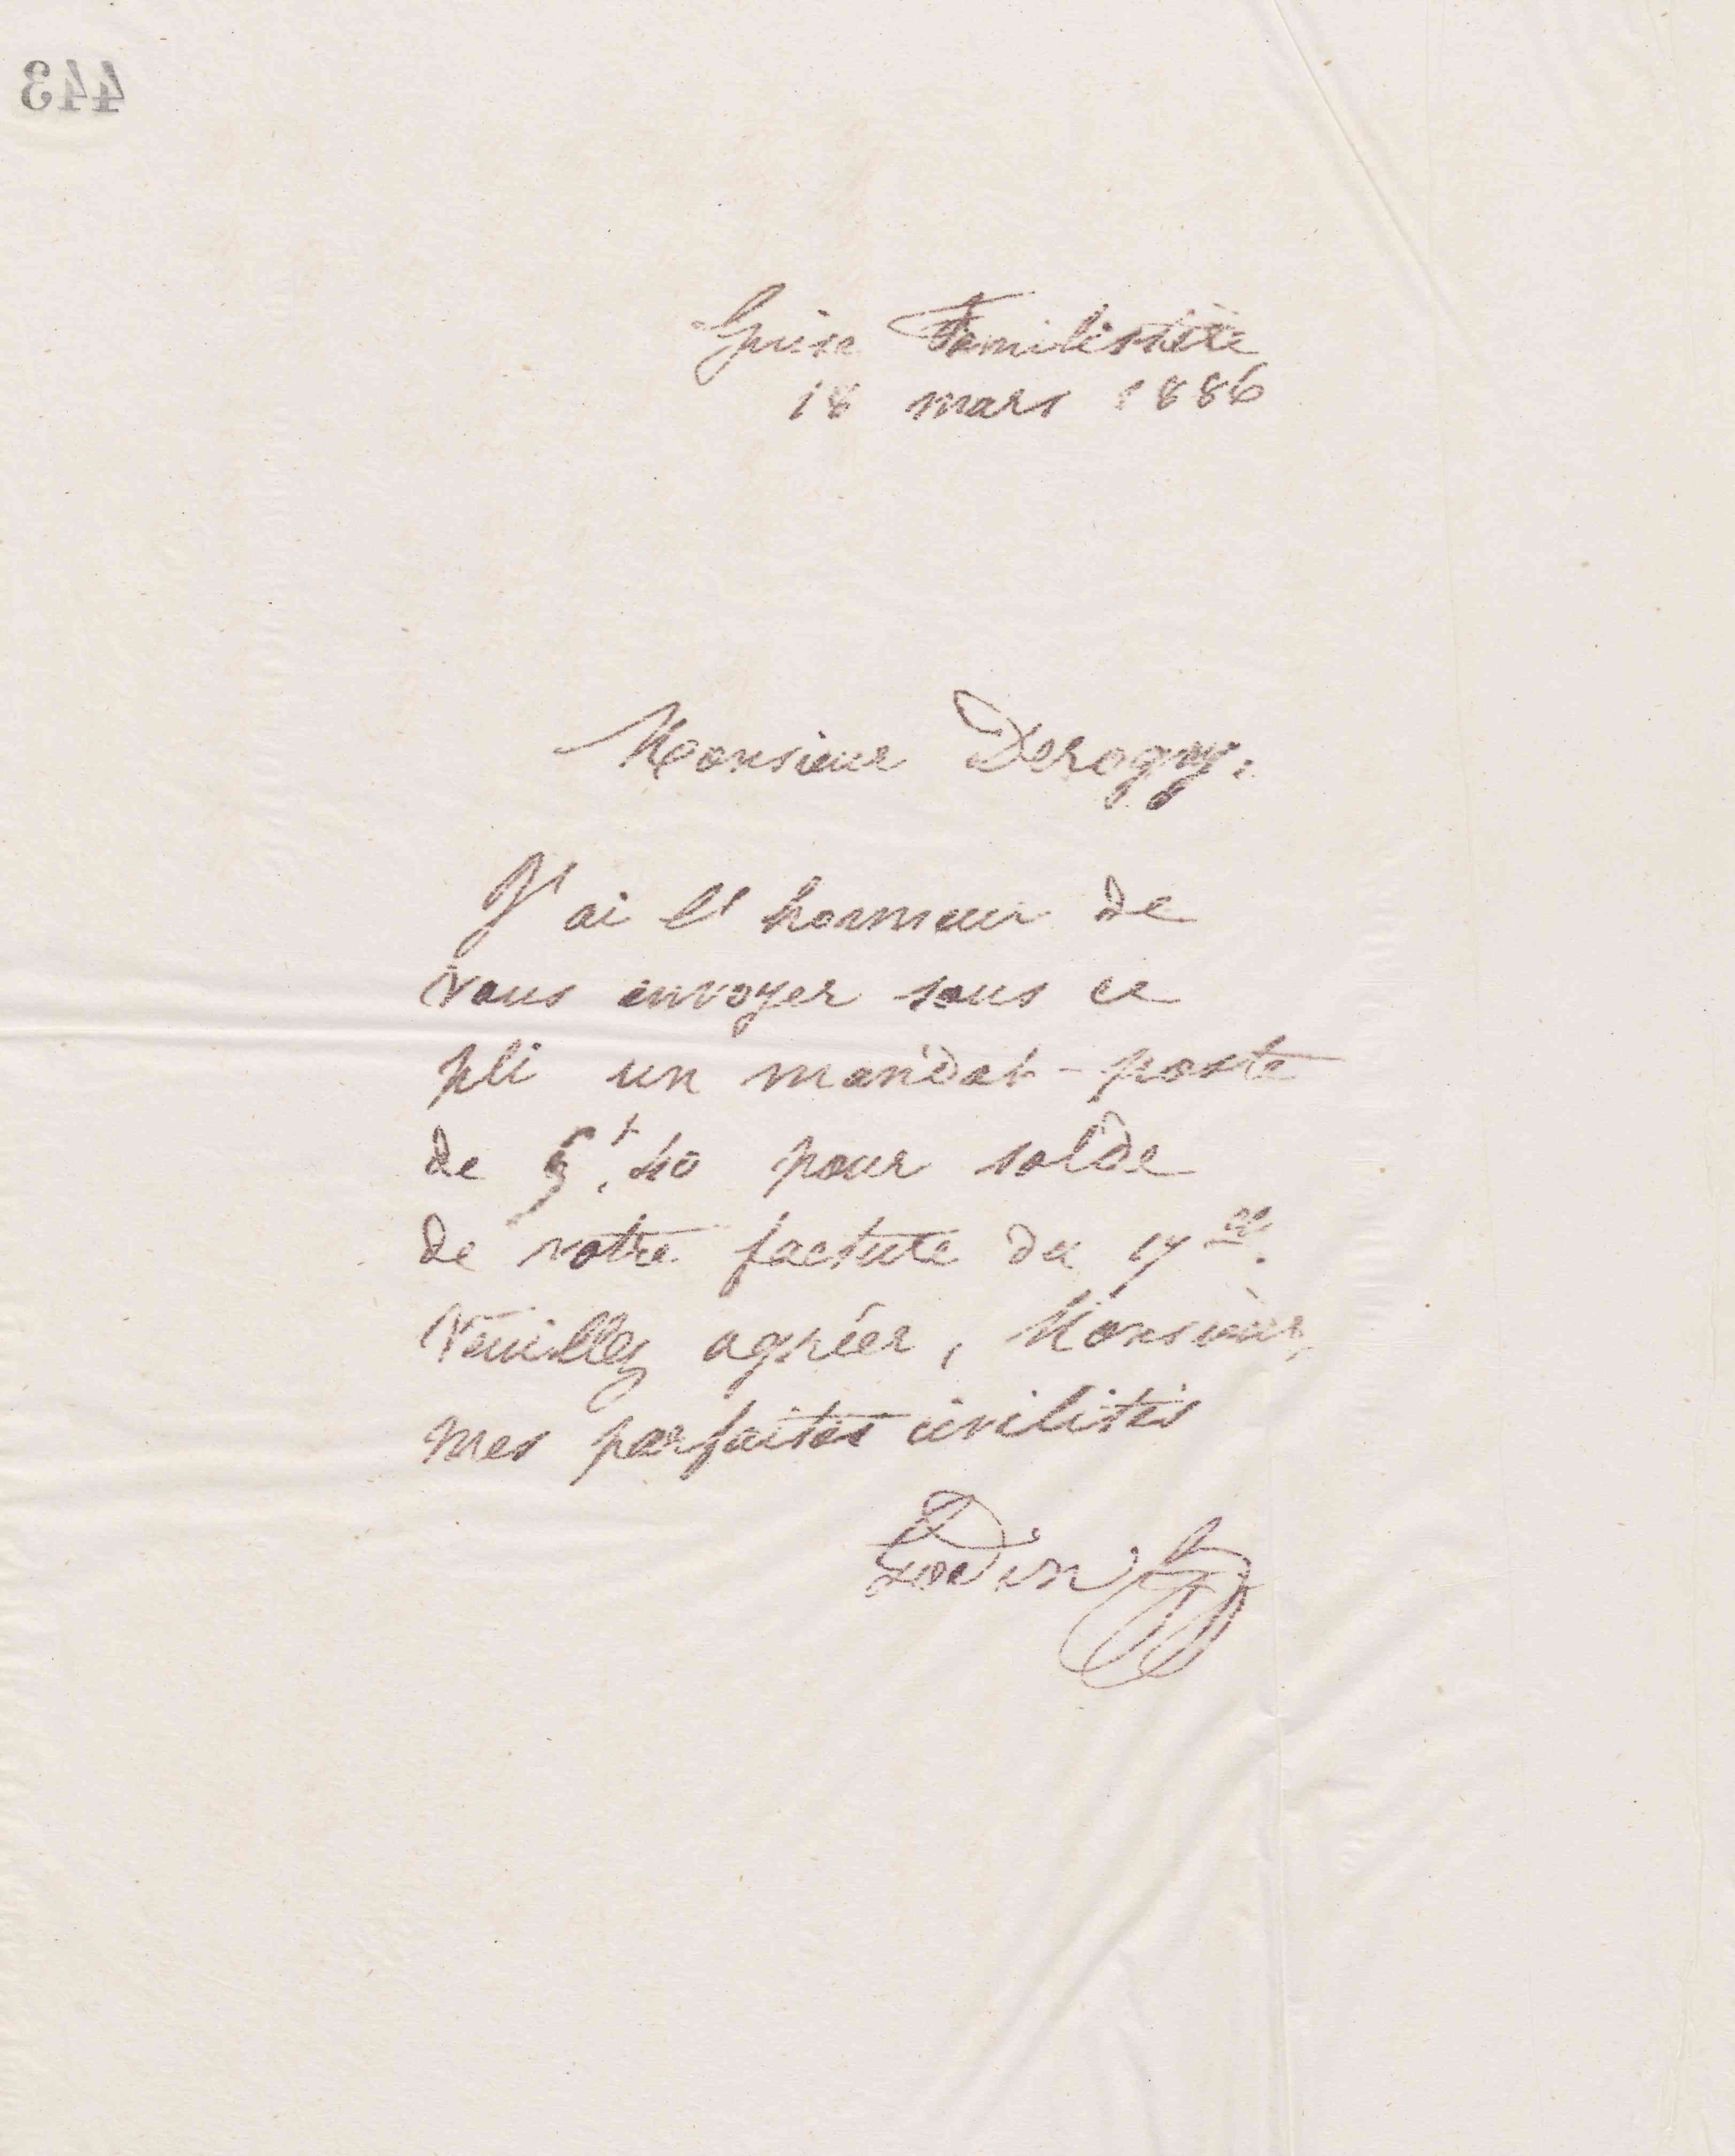 443
Guise Familistère
18 mars 1886
Monsieur Derogy,
J'ai l'honneur de
vous envoyer sous ce
pli un mandat-poste
de 5f,40 pour solde
de votre facture du 17 ct.
Veuillez agréer, Monsieur,
mes parfaites civilités
Godin